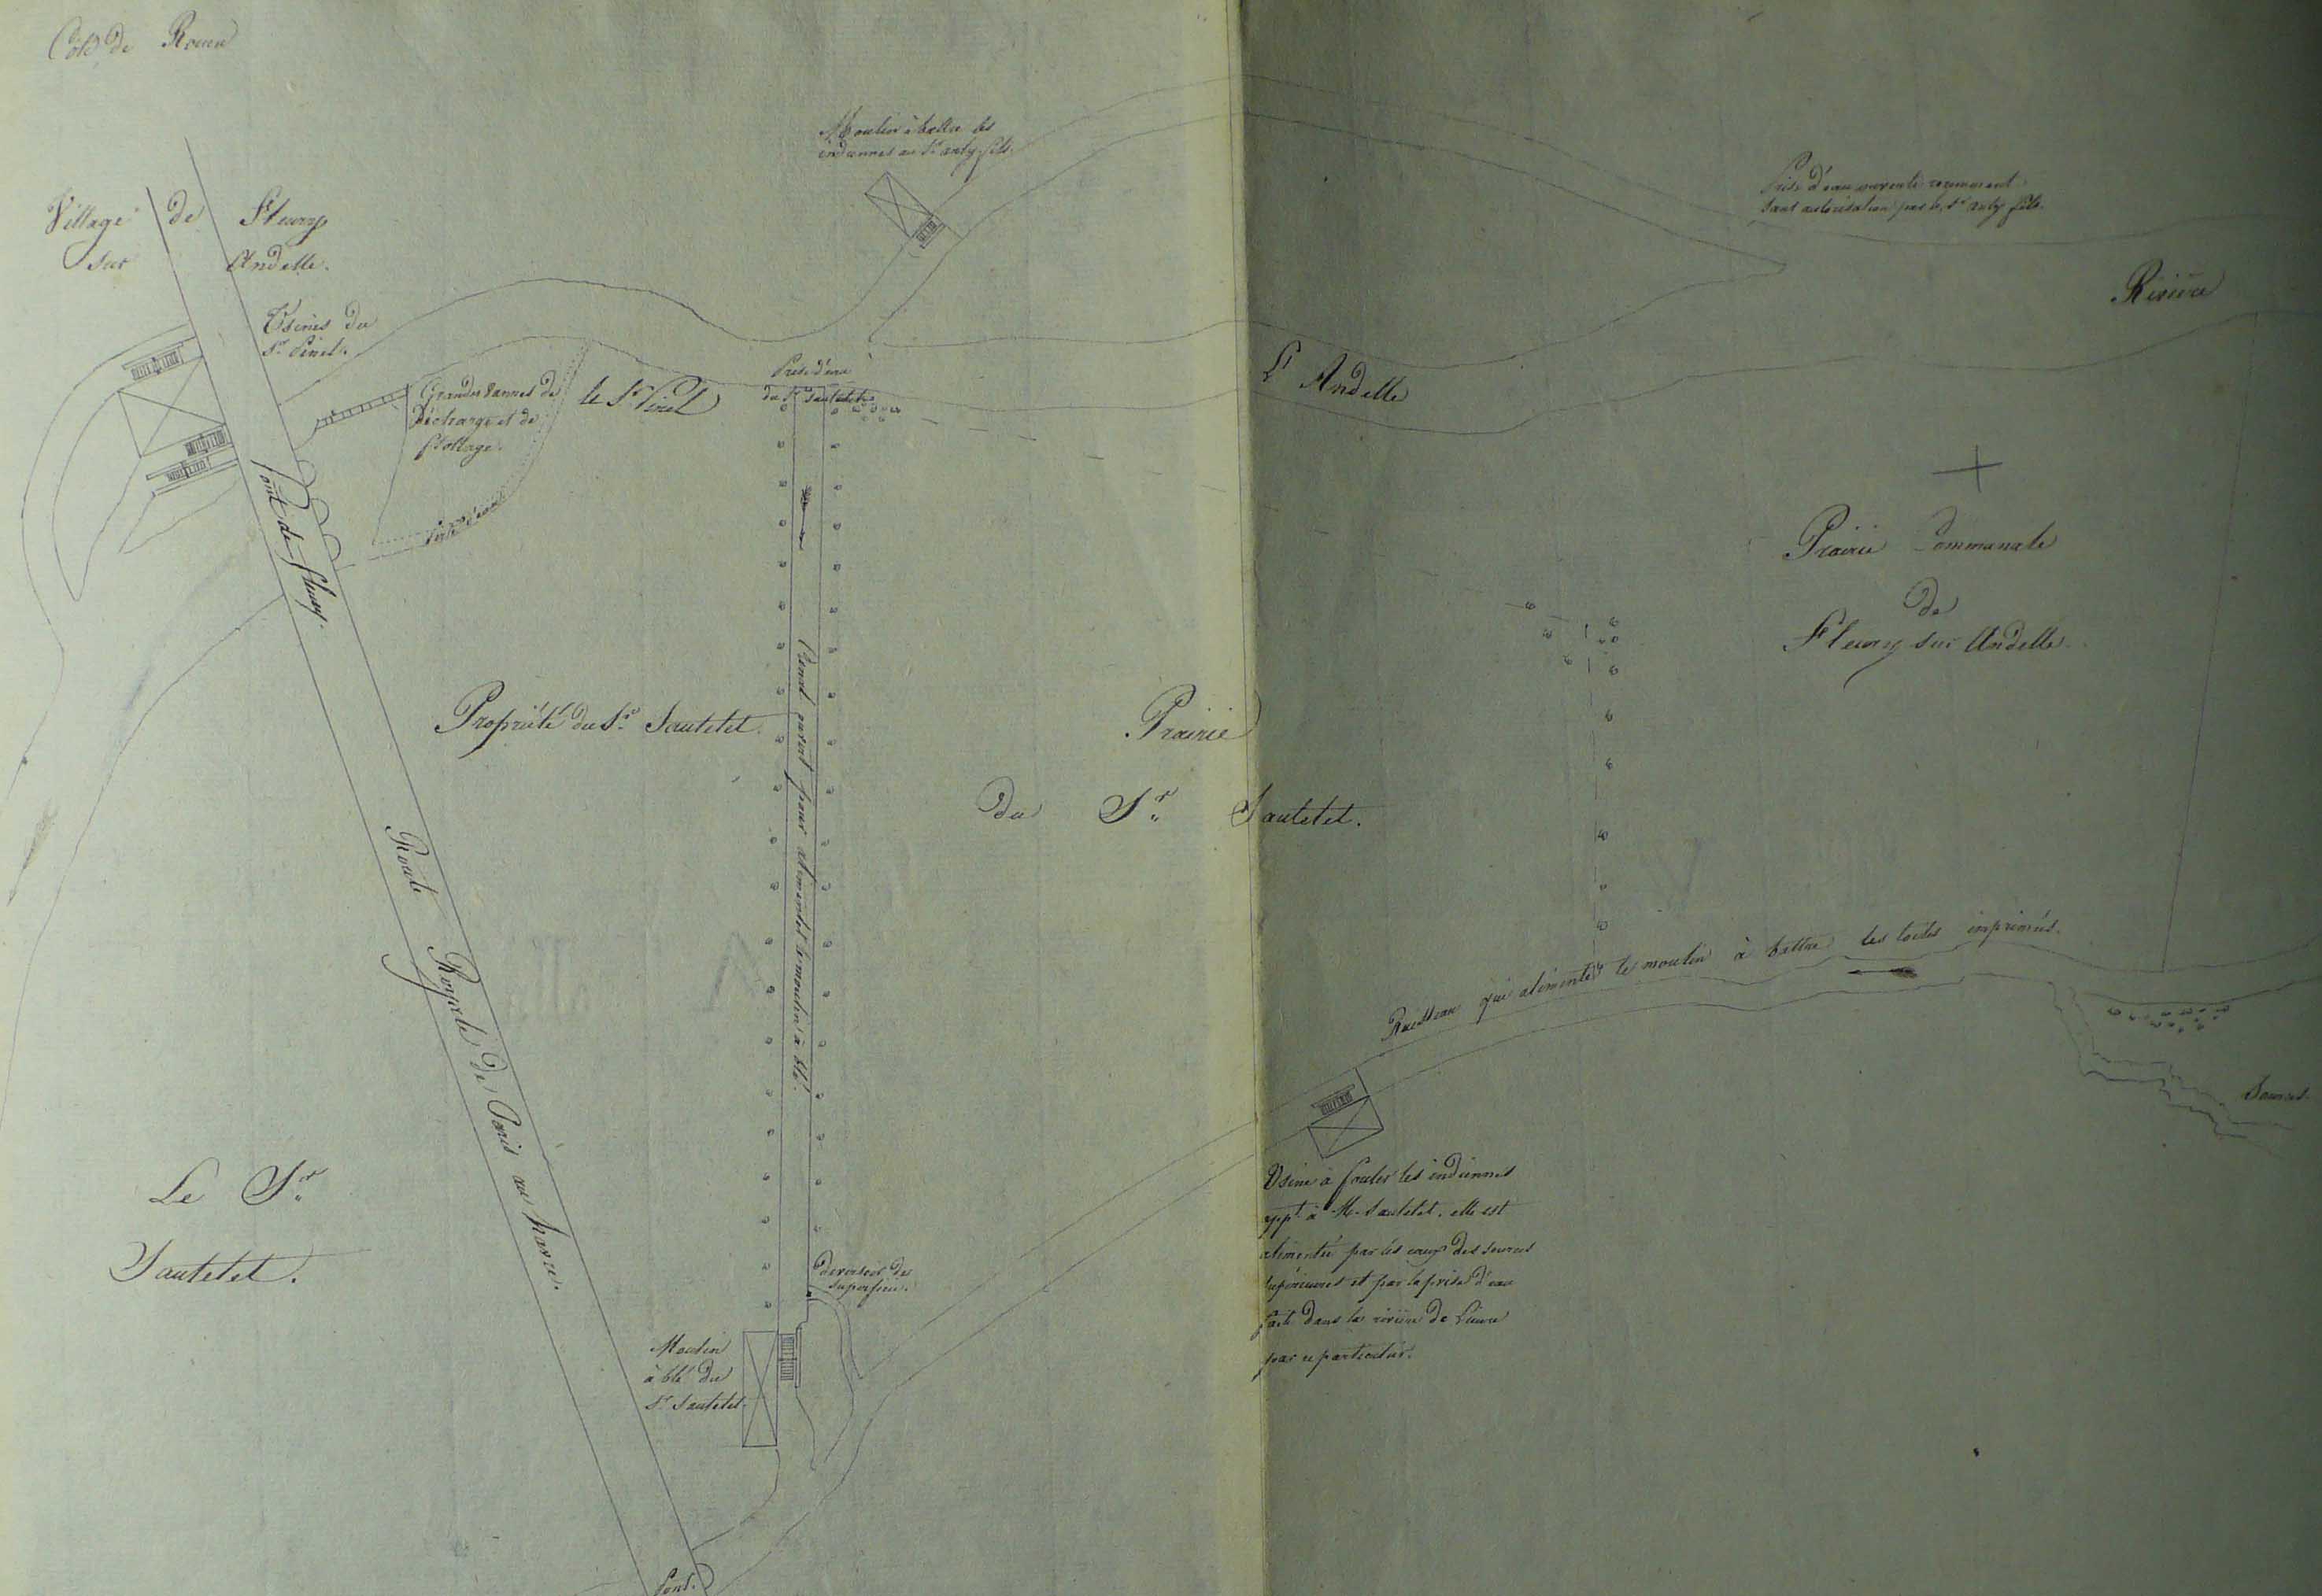 Côté de Rouen
Moulin à battre les
indiennes au Sr auly fils.
Prise d'eau ouverte recemment
sans autorisation par le Sr auly fils.
Village de Fleury
sur Andelle.
Rivière
Usines du
Sr Pinel.
L'Andelle
Prise d'eau
du Sr Sautelet
Grandes Vannes de
Décharge et de
flottage.
le Sr Pinel
Pont de fleury.
Prairie Communale
de
Fleury sur Andelle.
Propriété du Sr Sautelet.
Canal ouvert pour alimenter le moulin à blé.
Prairie
du Sr Sautelet.
Route Royale de Paris au havre.
Ruisseau qui alimente le moulin à battre les toiles imprimés.
Sources.
Le Sr
Sautelet.
Usine à fouler les indiennes
appt à M. Sautelet. elle est
alimentée par les eaux des sources
supérieures et par la prise d'eau
faite dans la rivière de Lieure
par ce particulier.
Deversoir de
superficie.
Moulin
à blé du
Sr Sautelet.
Pont.